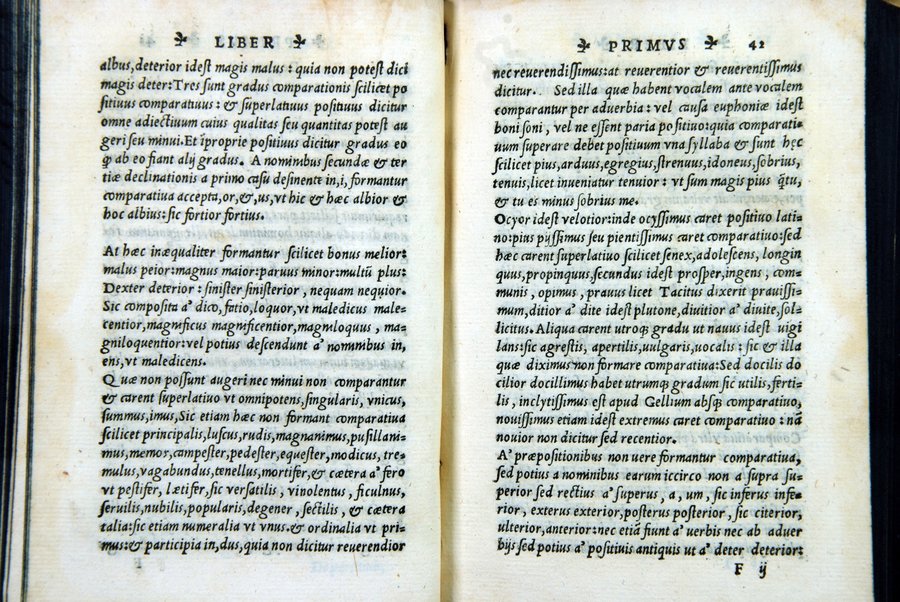 LIBER
albus,deterior idest magis malus : quia non potest dici
magis deter:Tres sunt gradus comparationis scilicet po
sitiuus comparatiuus : & superlatiuus positiuus dicitur
omne adiectiuum cuius qualitas seu quantitas potest au
geri seu minui.Et īproprie positiuus dicitur gradus eo
ꝙ ab eo fiant alij gradus. A nominibus secundæ & ter
tiæ declinationis a primo casu desinente in,i, formantur
comparatiua accepta,or,&,us,vt hic & hæc albior &
hoc albius: sic fortior fortius.
At hæc inæqualiter formantur scilicet bonus melior:
malus peior:magnus maior:paruus minor:multū plus:
Dexter deterior : sinister sinisterior , nequam nequior.
Sic composita a' dico,facio,loquor,vt maledicus male-
centior,magnificus magnificentior,magniloquus , ma-
gniloquentior:vel potius descendunt a' nominibus in,
ens,vt maledicens.
Quæ non possunt augeri nec minui non comparantur
& carent superlatiuo vt omnipotens,singularis, vnicus,
summus,imus, Sic etiam hæc non formant comparatiua
scilicet principalis,luscus,rudis,magnanimus,pusillani-
mus,memor,campester,pedester,equester,modicus,tre-
mulus,vagabundus,tenellus,mortifer,& cætera a' fero
vt pestifer, lætifer,sic versatilis , vinolentus , ficulnus,
seruilis,nubilis,popularis,degener , sectilis , & cætera
talia:sic etiam numeralia vt vnus.& ordinalia vt pri-
mus:& participia in,dus,quia non dicitur reuerendior
PRIMVS 42
nec reuerendissimus:at reuerentior & reuerentissimus
dicitur. Sed illa quæ habent vocalem ante vocalem
comparantur per aduerbia : vel causa euphoniæ idest
boni soni , vel ne essent paria positiuo:quia comparati-
uum superare debet positiuum vna syllaba & sunt hęc
scilicet pius,arduus,egregius,strenuus,idoneus,sobrius,
tenuis,licet inueniatur tenuior : vt sum magis pius q̄tu,
& tu es minus sobrius me.
Ocyor idest velotior:inde ocyssimus caret positiuo lati-
no:pius pijssimus seu pientissimus caret comparatiuo:sed
hæc carent superlatiuo scilicet senex,adolescens, longin
quus,propinquus,secundus idest prosper,ingens , com-
munis , opimus , prauus licet Tacitus dixerit prauissi-
mum,ditior a' dite idest plutone,diuitior a' diuite,sol-
licitus. Aliqua carent utroq; gradu ut nauus idest uigi
lans:sic agrestis, apertilis,uulgaris,uocalis : sic & illa
quæ diximus non formare comparatiua:Sed docilis do
cilior docillimus habet utrumq; gradum sic utilis,ferti-
lis , inclytissimus est apud Gellium absq; comparatiuo,
nouissimus etiam idest extremus caret comparatiuo : nā
nouior non dicitur sed recentior.
A' præpositionibus non uere formantur comparatiua,
sed potius a nominibus earum iccirco non a supra su-
perior sed rectius a' superus , a , um , sic inferus infe-
rior , exterus exterior,posterus posterior , sic citerior,
ulterior,anterior:nec etiā fiunt a' uerbis nec ab aduer
bijs sed potius a' positiuis antiquis ut a' deter deterior:
F ij